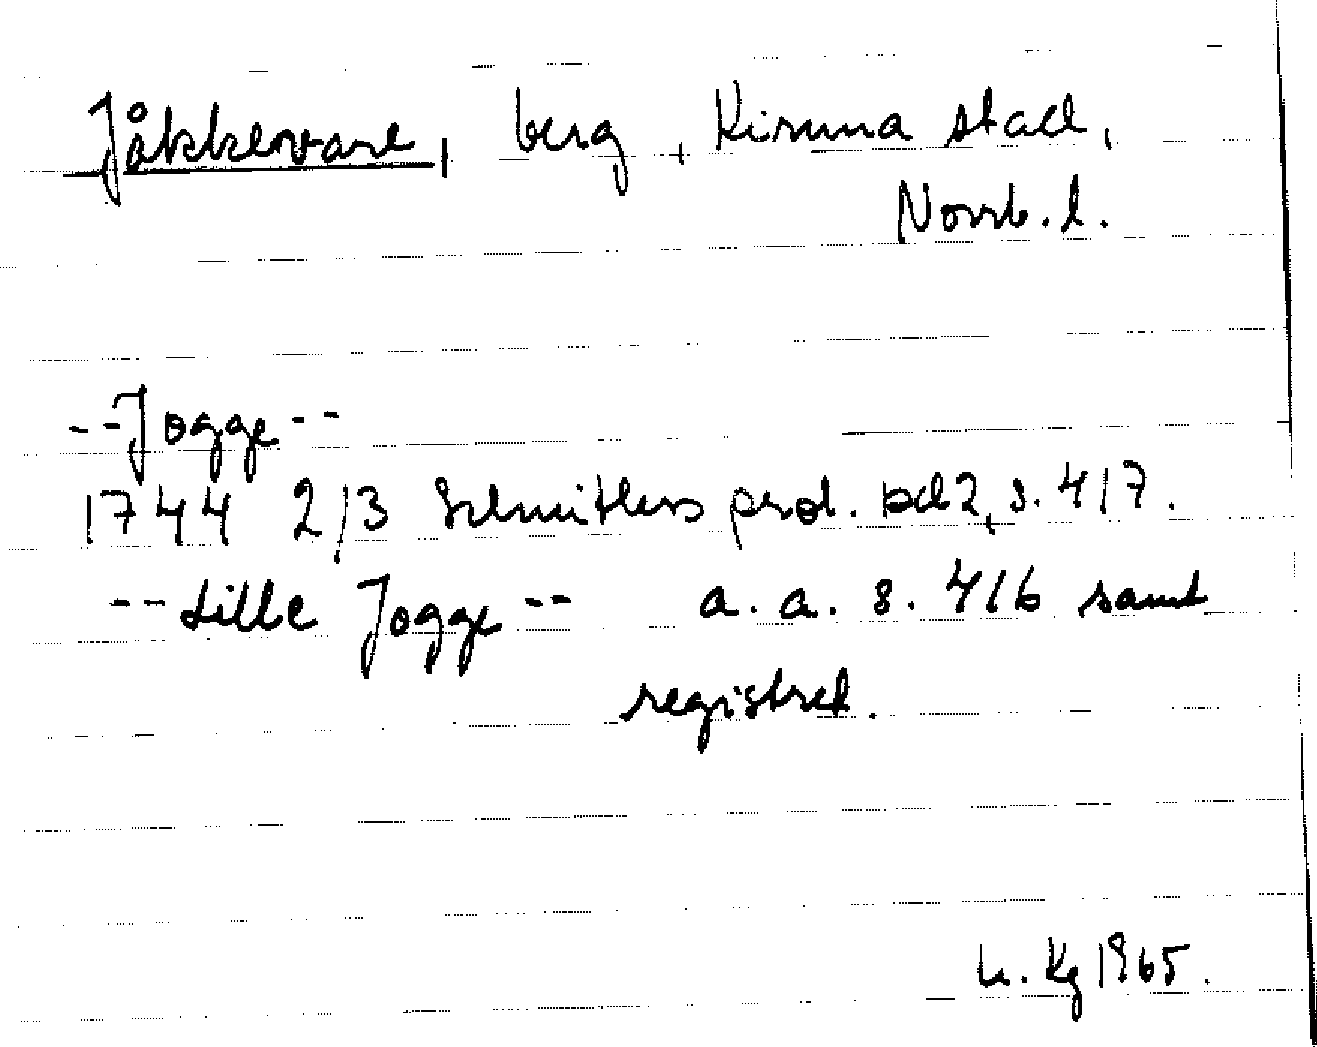 Jåkkevare, berg, Kiruna stad,
Norrb. l.
--Jogge--
1744 2/3 Schnitlers prot. bd 2, s. 417.
--Lille Jogge-- a. a. s. 416 samt
registret.
Kg 1965.